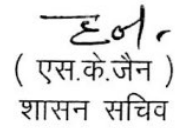 ( एस.के.जैन )
शासन सचिव